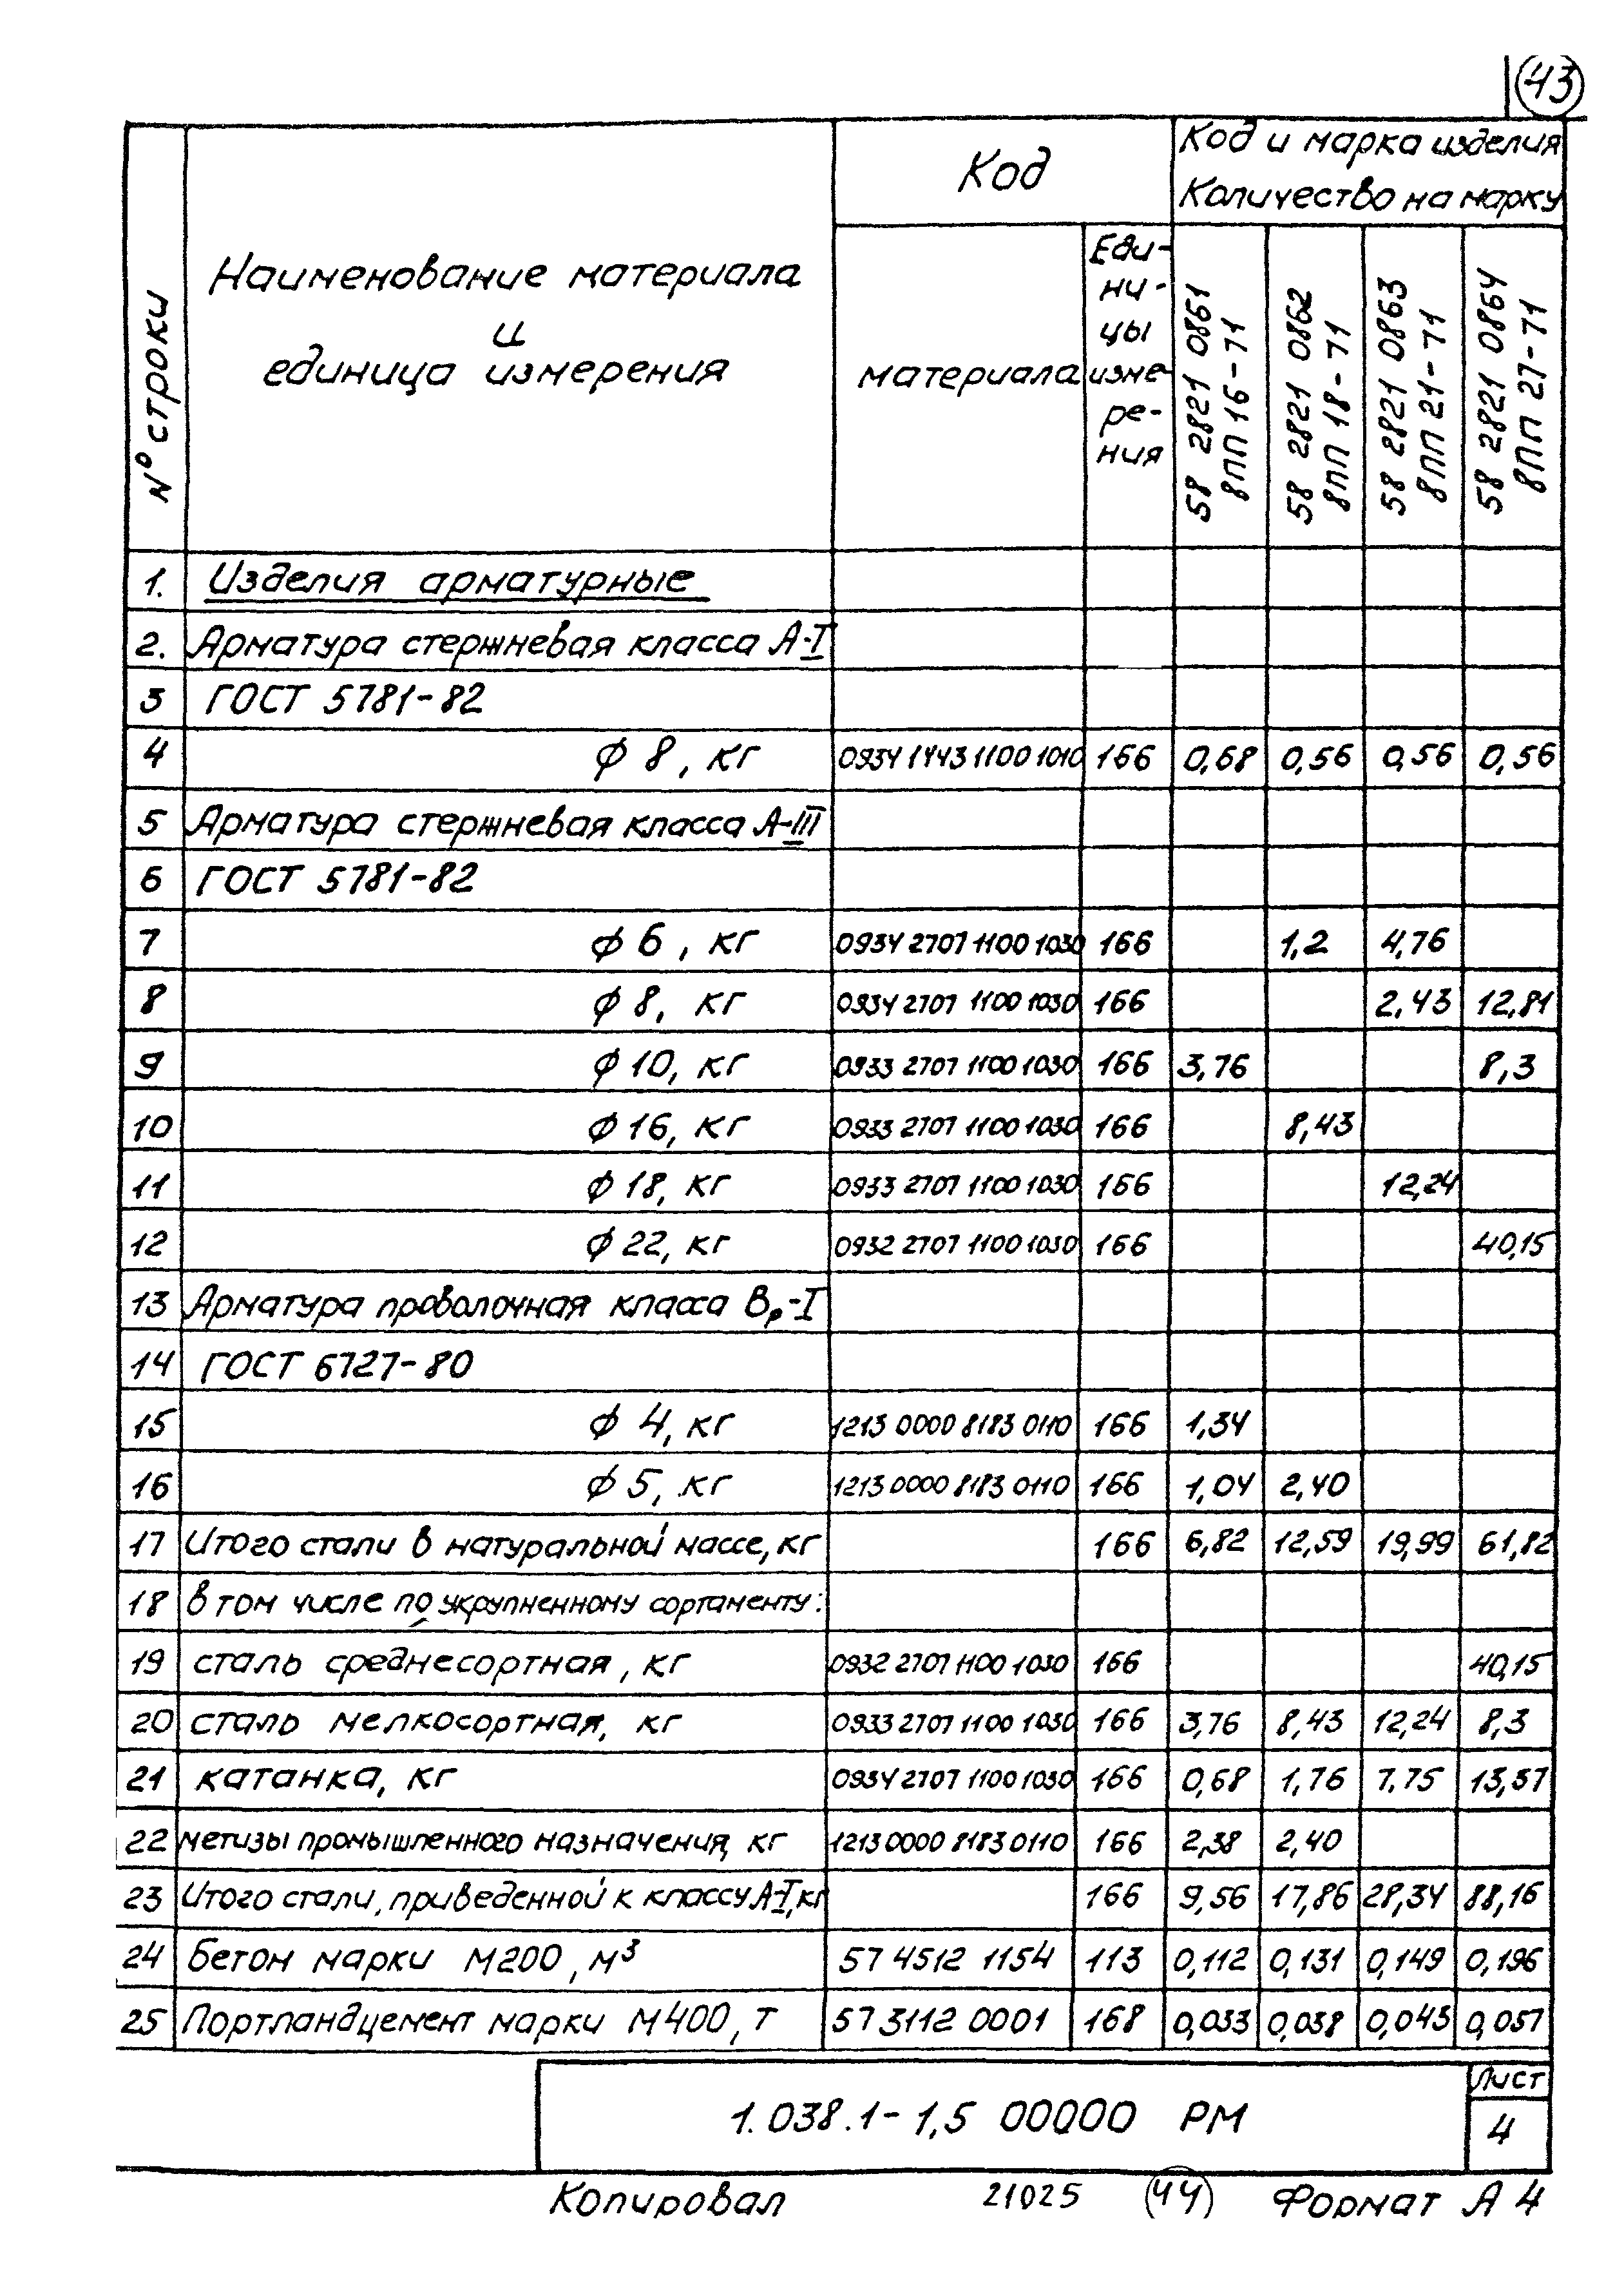 43
№ строки
Наименование материала
и
единица измерения
Код
Код и марка изделия
Количество на марку
материала
Еди-
ни-
цы
изме-
ре-
ния
58 2821 0861
8ПП 16-71
58 2821 0862
8ПП 18-71
58 2821 0863
8ПП 21-71
58 2821 0864
8ПП 27-71
1. Изделия арматурные
2. Арматура стержневая класса А-I
3 ГОСТ 5781-82
4 ф 8, кг 0934 1443 1100 1010 166 0,68 0,56 0,56 0,56
5 Арматура стержневая класса А-III
6 ГОСТ 5781-82
7 ф 6, кг 0934 2707 1100 1030 166 1,2 4,76
8 ф 8, кг 0934 2707 1100 1030 166 2,43 12,81
9 ф 10, кг 0933 2707 1100 1030 166 3,76 8,3
10 ф 16, кг 0933 2707 1100 1030 166 8,43
11 ф 18, кг 0933 2707 1100 1030 166 12,24
12 ф 22, кг 0932 2707 1100 1030 166 40,15
13 Арматура проволочная класса Вр-I
14 ГОСТ 6727-80
15 ф 4, кг 1213 0000 8183 0110 166 1,34
16 ф 5, кг 1213 0000 8183 0110 166 1,04 2,40
17 Итого стали в натуральной массе, кг 166 6,82 12,59 19,99 61,82
18 в том числе по укрупненному сортаменту:
19 сталь среднесортная, кг 0932 2707 1100 1030 166 40,15
20 сталь мелкосортная, кг 0933 2707 1100 1030 166 3,76 8,43 12,24 8,3
21 катанка, кг 0934 2707 1100 1030 166 0,68 1,76 7.75 13,37
22 метизы промышленного назначения, кг 1213 0000 8183 0110 166 2,38 2,40
23 Итого стали, приведенной к классу А-I, кг 166 9,56 17,86 28,34 88,16
24 Бетон марки М200, м³ 57 4512 1154 113 0,112 0,131 0,149 0,196
25 Портландцемент марки М400, т 57 3112 0001 168 0,033 0,038 0,043 0,057
1.038.1-1,5 00000 РМ
Лист
4
Копировал 21025 44 Формат А4